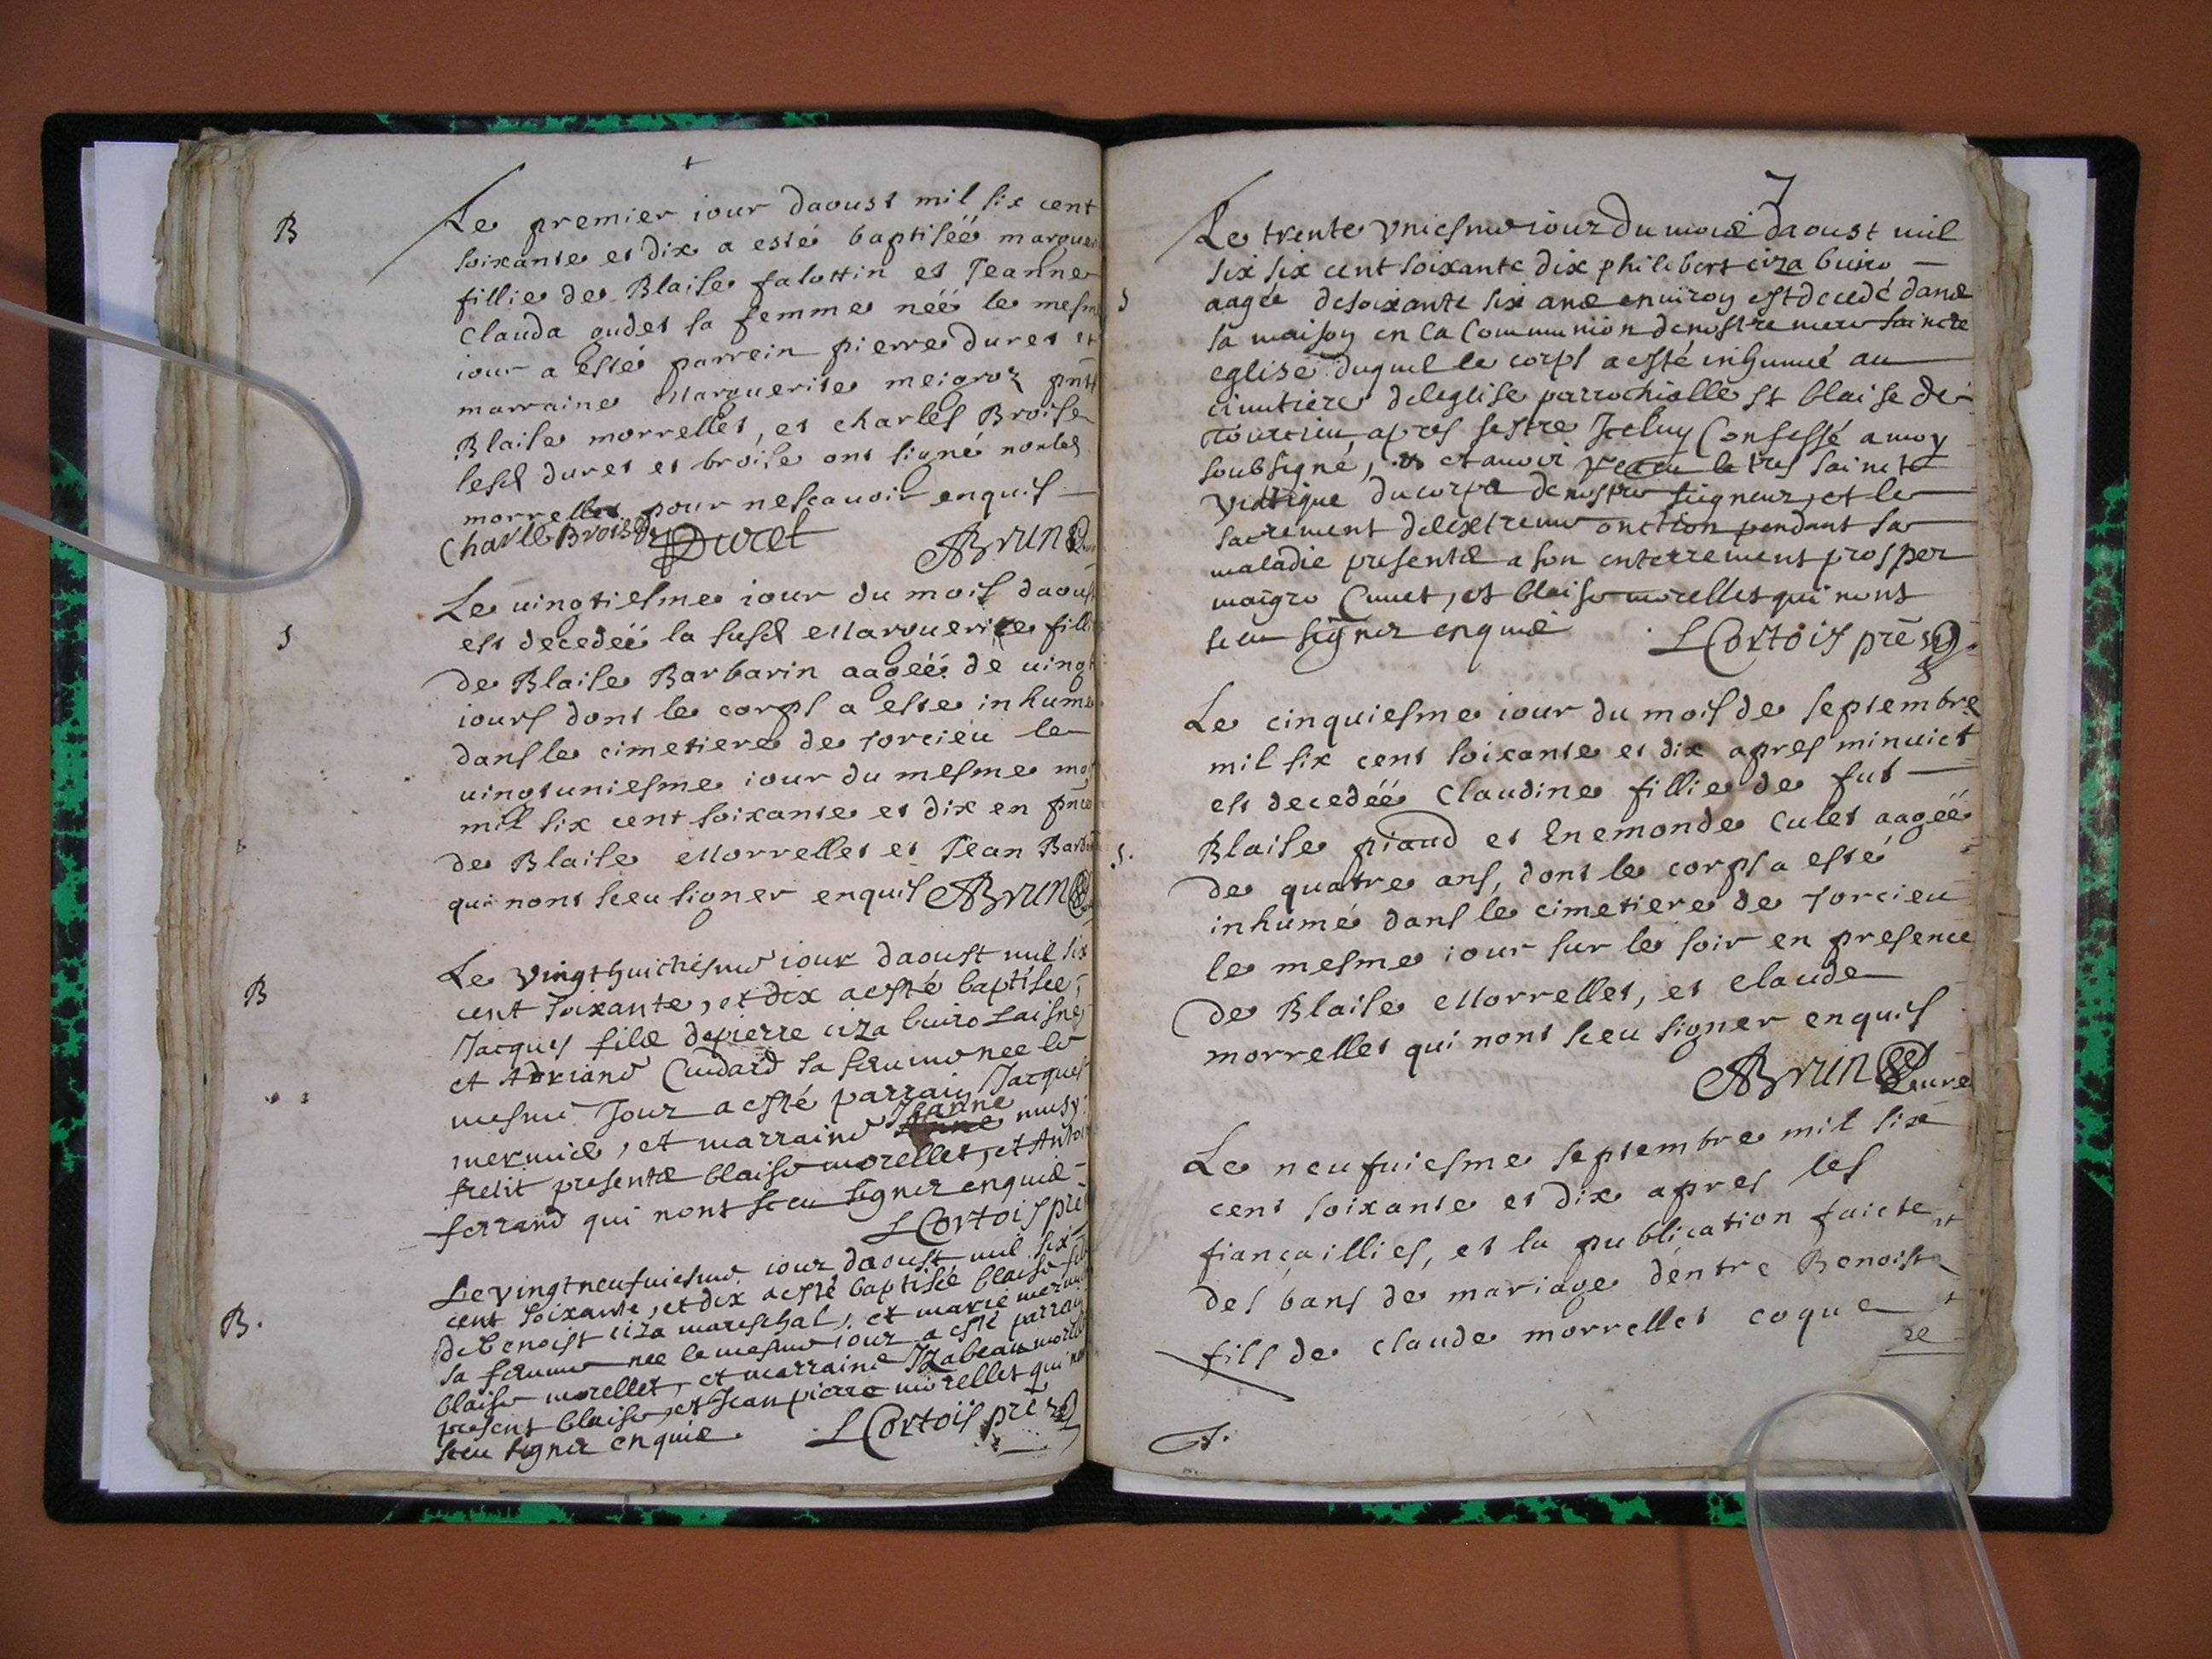 B
Le premier iour daoust mil six cent
soixante et dix a esté baptiséé margue
fillie de Blaise falottin et Jeanne
Clauda oudet sa femme néé le mesme
iour a esté parrein pierre duret et
marraine Marguerite meigroz pnts
Blaise morrellet, et charles Broise
lesd duret et broise ont signé non led
morrellet pour ne scauoir enquis
Charle Broise Duret ABrun
S
Le uingtiesme iour du mois daoust
est decedéé la susd Marguerite fillie
de Blaise Barbarin aagéé de uingt
iours dont le corps a este inhumé
dans le cimetiere de torcieu le
uingtuniesme iour du mesme mois
mil six cent soixante et dix en pnce
de Blaise Morrellet et Jean Barb
qui nont sceu signer enquis ABrun
B
Le vingthuictiesme iour daoust mil six
cent soixante, et dix a esté baptisée,
Jacques fils de pierre ciza buiro Laisné
et Adriane Cudard sa femme nee le
mesme Jour a esté parrain Jacques
mermié, et marraine Jeanne musy
fretit presents blaise morellet, et Anto
ferrand qui nont sceu signer enquis
L Cortois pre
B.
Le vingtneufuiesme iour daoust mil six
cent soixante, et dix a esté baptisée blaise
de benoist ciza mareschal, et marie mermi
sa femme nee le mesme iour a esté parrain
blaise morellet, et marraine Izabeau morel
present blaise, et Jean pierre morellet qui nont
sceu signer enquis. L Cortois pre
7
S
Le trente vniesme iour du mois daoust mil
six six cent soixante dix philibert ciza buiro
aagée de soixante six ans enuiron est decedé dans
sa maison en la Communion de nostre mere saincte
eglise duquel le corps a esté inhumé au
cimetiere de leglise parrochialle st blaise de
torcieu, apres sestre Iceluy Confessé a moy
soubsigné, et auoir receu le tres sainct
viatique du corps de nostre seigneur, et le
sacrement de lextreme onction pendant sa
maladie presents a son enterrement prosper
maigro Cuuet, et blaise morellet qui nont
sceu signer enquis L Cortois pre
S.
Le cinquiesme iour du mois de septembre
mil six cent soixante et dix apres minuict
est decedéé Claudine fillie de fut
Blaise piaud et Enemonde Culet aagéé
de quatre ans, dont le corps a esté
inhumé dans le cimetiere de torcieu
le mesme iour sur le soir en presence
de Blaise Morrellet, et claude
morrellet qui nont sceu signer enquis
ABrun Cure
Le neufuiesme septembre mil six
cent soixante et dix apres les
fiançaillies, et la publication faicte
des bans de mariage dentre Benoist
fils de claude morrellet coque
re